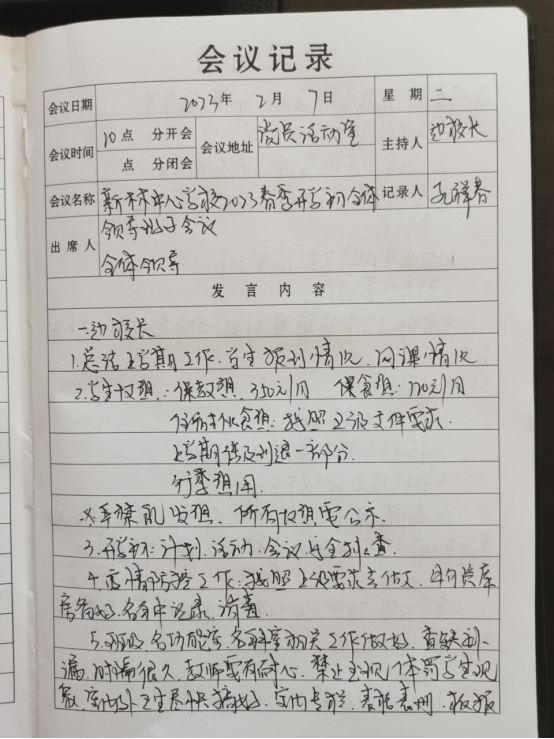 会议记录
会议日期 2023年 2月 7日 星期 二
会议时间 10点 分开会 会议地址 党员活动室 主持人 边校长
点 分闭会
会议名称 新林中心学校2023春季开学初全体 记录人 孔祥春
领导班子会议
出席人
全体领导
发言内容
一、边校长
1.总结上学期工作.学生报到情况.网课情况
2.学生收费:保教费350元/月 保食费:170元/月
住宿 伙食费:按照上级文件要求.
上学期 退一部分.
费用.
收费.所有收费要公示.
3.开学初:计划.活动.会议.安全检查.
4.疫情防控工作:按照上级要求去做.
记录.消毒
5.班级各功能室各科室相关工作做好.查缺补
漏.时隔很久.教师要有耐心.禁止出现体罚学生现
象.室内外卫生尽快搞好.室内专栏. 板报